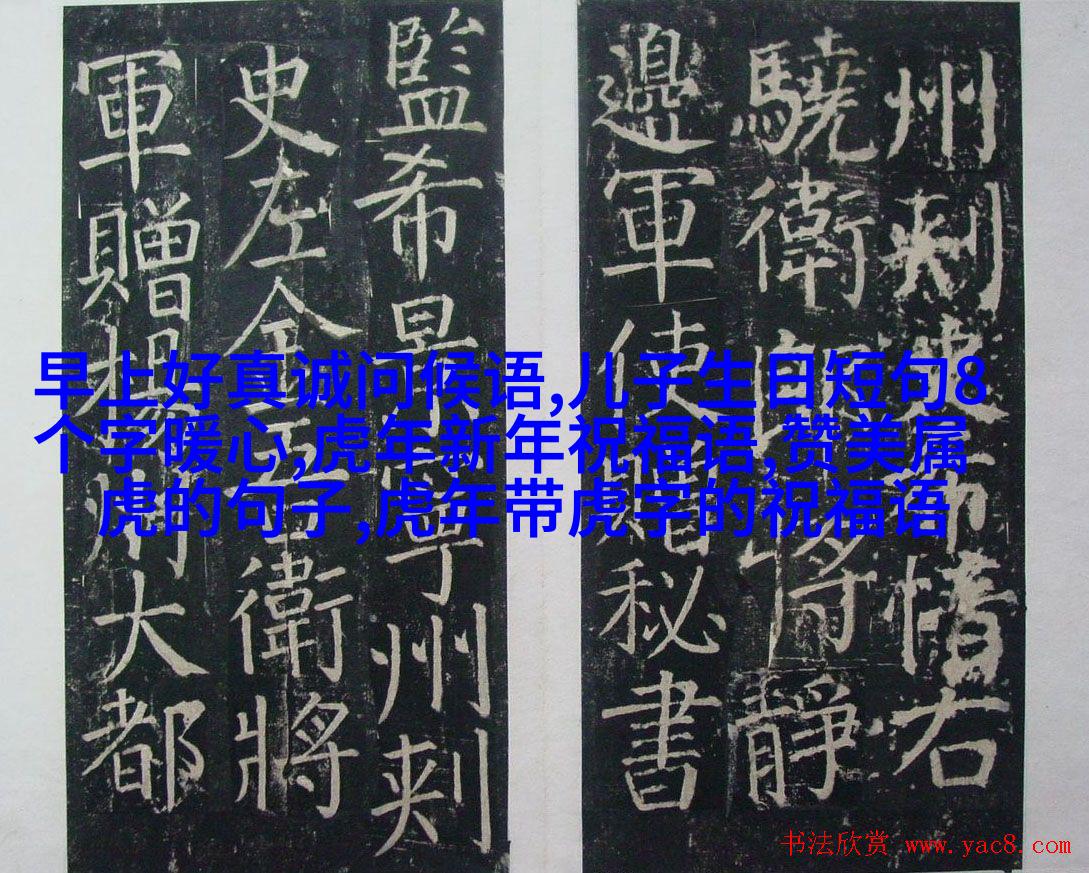 州刾史希愔右
驍衛郎將靜
邊軍使贈秘書
監希景寧州刾
史左金吾衛將
軍贈揚州大都
早上好真诚问候语,儿子生日短句8
个字暖心,虎年新年祝福语,赞美属
虎的句子,虎年带虎字的祝福语
书法欣赏 www.yac8.com